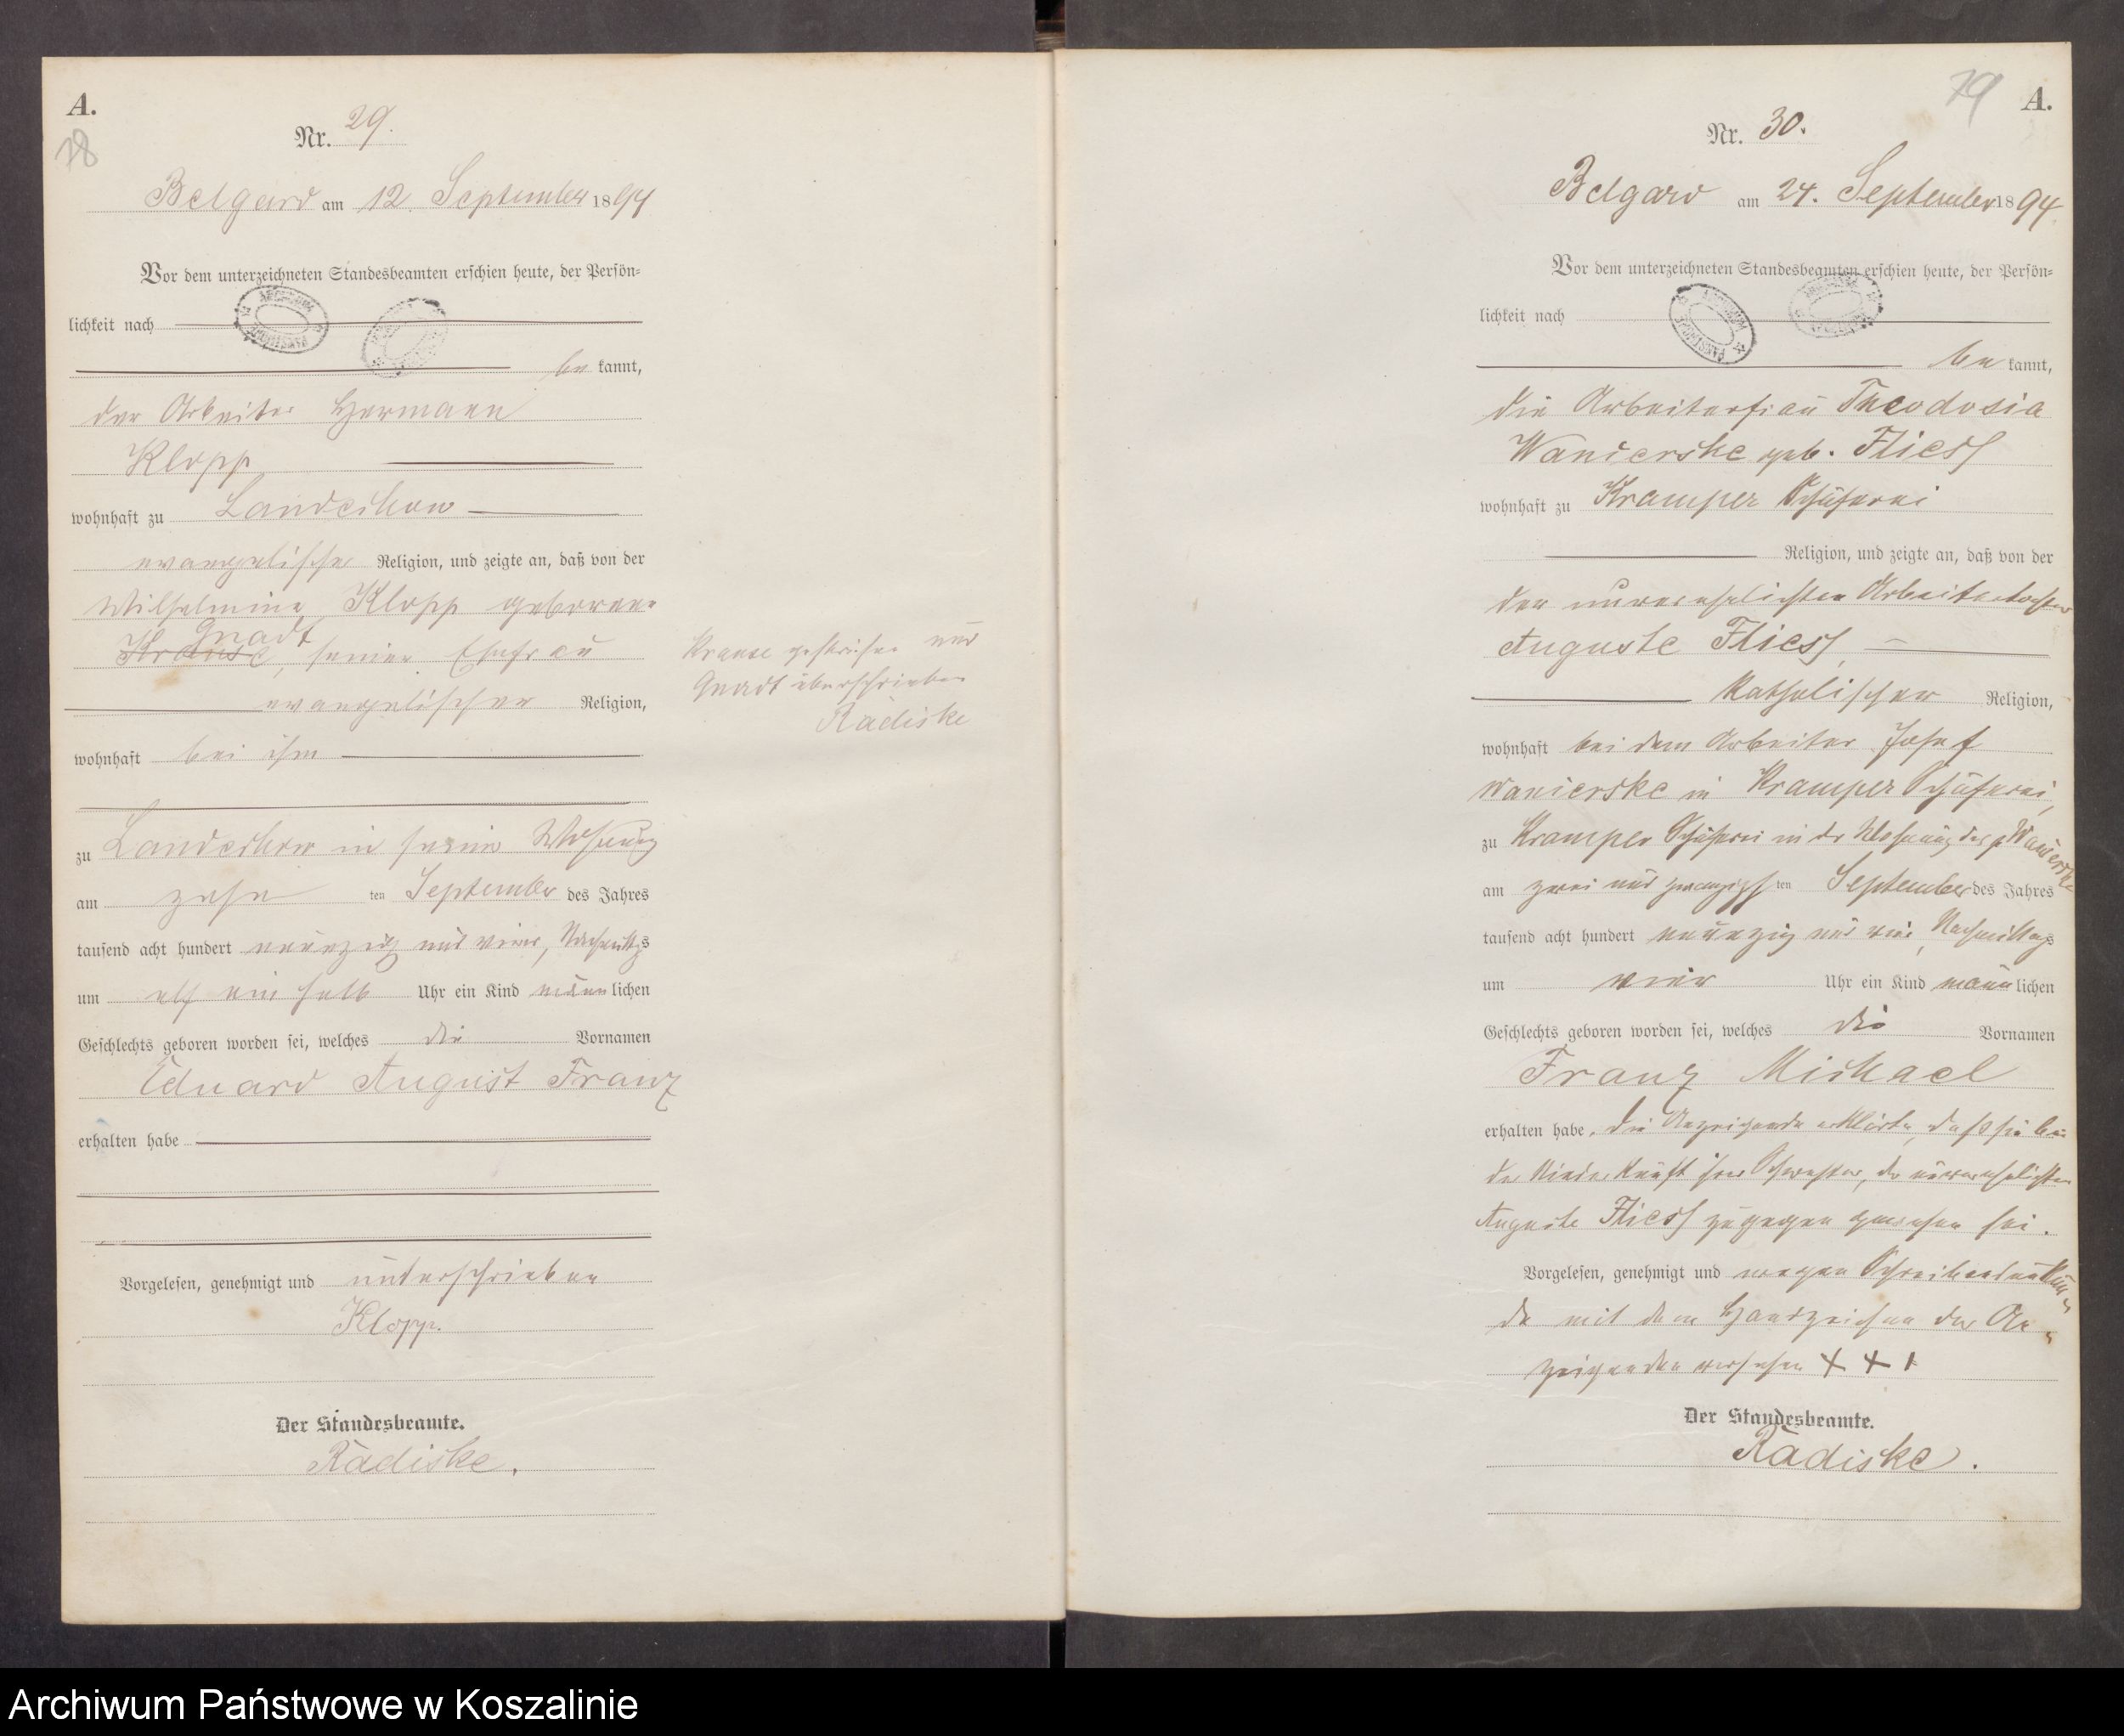 A.
78
Nr. 29.
Belgard am 12. September 1894
Vor dem unterzeichneten Standesbeamten erschien heute, der Persön=
lichkeit nach
be kannt,
der Arbeiter Hermann
Klopp
wohnhaft zu Landechow
evangelischer Religion, und zeigte an, daß von der
Wilhelmine Klopp geborene
Gnadt
Krause, seiner Ehefrau
evangelischer Religion,
wohnhaft bei ihm
zu Landechow in seiner Wohnung
am zehn ten September des Jahres
tausend acht hundert neunzig und vier, Nachmittags
um elf ein halb Uhr ein Kind männ lichen
Geschlechts geboren worden sei, welches die Vornamen
Eduard August Franz
erhalten habe
Vorgelesen, genehmigt und unterschrieben
Klopp.
Der Standesbeamte.
Radiske.
Krause gestrichen und
Gnadt überschrieben
Radiske
79
A.
Nr. 30.
Belgard am 24. September 1894.
Vor dem unterzeichneten Standesbeamten erschien heute, der Persön=
lichkeit nach
be kannt,
die Arbeiterfrau Theodosia
Wanierske geb. Fliess
wohnhaft zu Kramper Schäferei
Religion, und zeigte an, daß von der
der unverehelichten Arbeitertochter
Auguste Fliess,
katholischer Religion,
wohnhaft bei dem Arbeiter Josef
Wanierske in Kramper Schäferei,
zu Kramper Schäferei in der Wohnung des p Wanierske
am zwei und zwanzigsten September des Jahres
tausend acht hundert neunzig und vier, Nachmittags
um vier Uhr ein Kind männ lichen
Geschlechts geboren worden sei, welches die Vornamen
Franz Michael
erhalten habe. Die Anzeigende erklärte, dass sie bei
der Niederkunft ihrer Schwester, der unverehelichten
Auguste Fliess zugegen gewesen sei.
Vorgelesen, genehmigt und wegen Schreibensunkun=
de mit dem Handzeichen der An=
zeigenden versehen + + +
Der Standesbeamte.
Radiske.
Archiwum Państwowe w Koszalinie